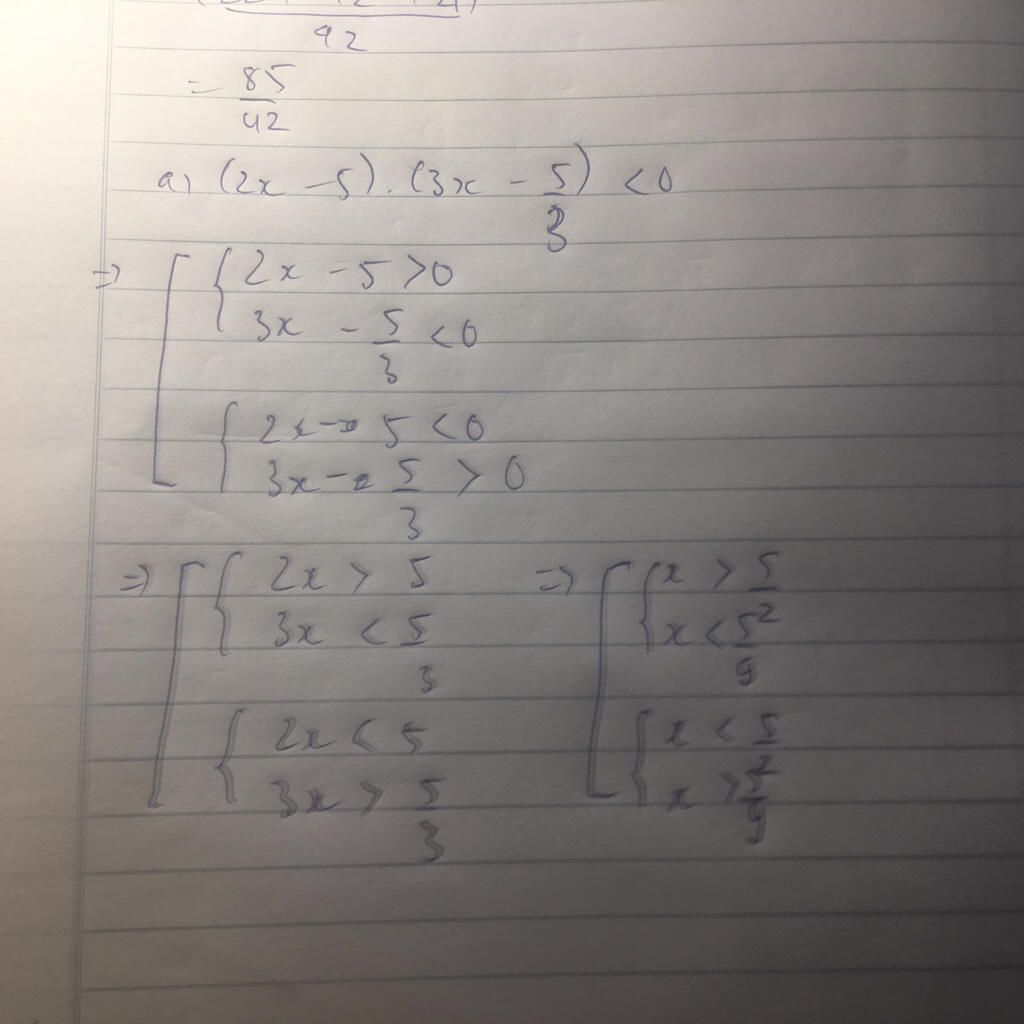 92
= 85/42
a) (2x - 5).(3x - 5/3) < 0
=> [ { 2x - 5 > 0
3x - 5/3 < 0
{ 2x - 5 < 0
3x - 5/3 > 0
=> [ { 2x > 5 => [ { x > 5/2
3x < 5/3 x < 5/9
{ 2x < 5 { x < 5/2
3x > 5/3 x > 5/9